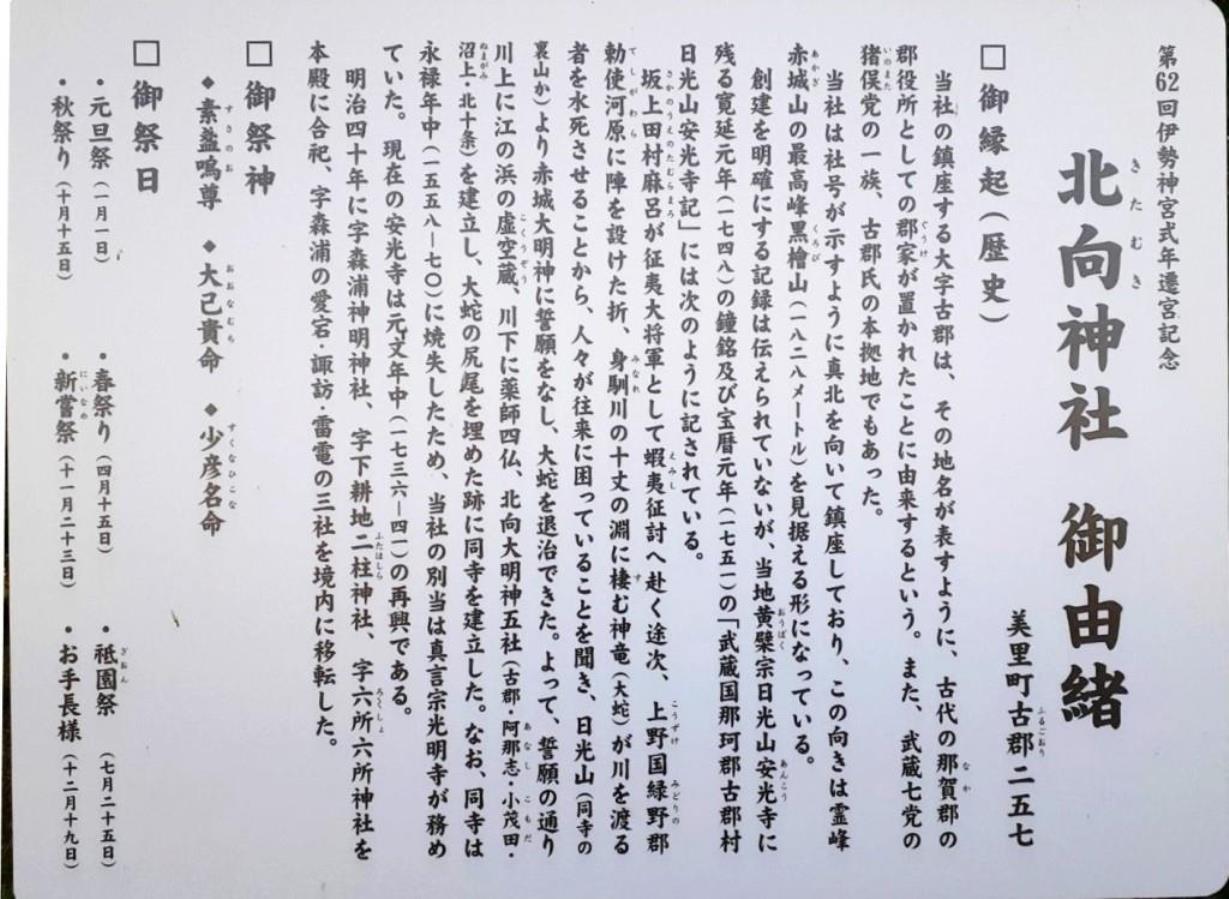 第62回伊勢神宮式年遷宮記念
北向神社 御由緒
美里町古郡二五七
□御縁起(歴史)
当社の鎮座する大字古郡は、その地名が表すように、古代の那賀郡の
郡役所としての郡家が置かれたことに由来するという。また、武蔵七党の
猪俣党の一族、古郡氏の本拠地でもあった。
当社は社号が示すように真北を向いて鎮座しており、この向きは霊峰
赤城山の最高峰黒檜山(一八二八メートル)を見据える形になっている。
創建を明確にする記録は伝えられていないが、当地黄檗宗日光山安光寺に
残る寛延元年(一七四八)の鐘銘及び宝暦元年(一七五一)の「武蔵国那珂郡古郡村
日光山安光寺記」には次のように記されている。
坂上田村麻呂が征夷大将軍として蝦夷征討へ赴く途次、上野国緑野郡
勅使河原に陣を設けた折、身馴川の十丈の淵に棲む神竜(大蛇)が川を渡る
者を水死させることから、人々が往来に困っていることを聞き、日光山(同寺の
裏山か)より赤城大明神に誓願をなし、大蛇を退治できた。よって、誓願の通り
川上に江の浜の虚空蔵、川下に薬師四仏、北向大明神五社(古郡・阿那志・小茂田・
沼上・北十条)を建立し、大蛇の尻尾を埋めた跡に同寺を建立した。なお、同寺は
永禄年中(一五五八―七〇)に焼失したため、当社の別当は真言宗光明寺が務め
ていた。現在の安光寺は元文年中(一七三六―四一)の再興である。
明治四十年に字森浦神明神社、字下耕地二柱神社、字六所六所神社を
本殿に合祀、字森浦の愛宕・諏訪・雷電の三社を境内に移転した。
□御祭神
◆素盞嗚尊 ◆大己貴命 ◆少彦名命
□御祭日
・元旦祭(一月一日) ・春祭り(四月十五日) ・祇園祭(七月二十五日)
・秋祭り(十月十五日) ・新嘗祭(十一月二十三日) ・お手長様(十二月十九日)